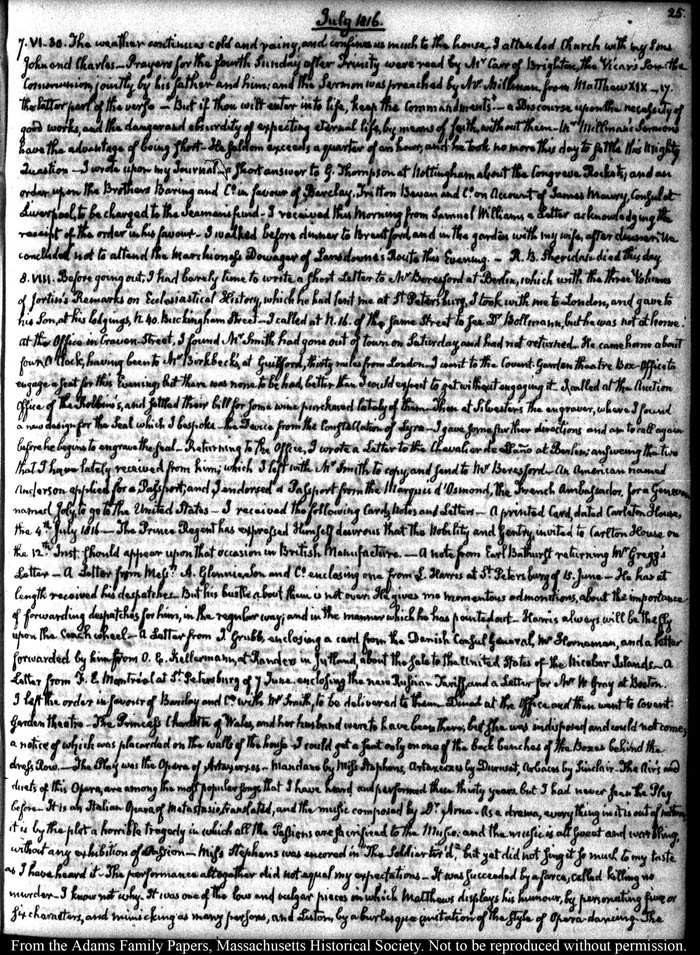 July 1816.
25.
7. VI. 30. The weather continues cold and rainy, and confines us much to the house. I attended Church with my Sons
John and Charles — Prayers for the fourth Sunday after Trinity were read by Mr Carr of Brighton, the Vicar's Son — the
Communion jointly by his father and him; and the Sermon was preached by Mr Millman, from Matthew XIX — 17.
the latter part of the verse — But if thou wilt enter into life, keep the commandments. — a Discourse upon the necessity of
good works, and the danger and absurdity of expecting eternal life, by means of faith, without them — Mr Millman's Sermons
have the advantage of being short — He seldom exceeds a quarter of an hour, and he took no more this day to settle this mighty
Question — I wrote upon my Journal, a short answer to G. Thompson at Nottingham about the Congreve Rockets, and an
order upon the Brothers Baring and Co. in favour of Barclay, Tritton Bevan and Co. on Account of James Maury, Consul at
Liverpool, to be charged to the Seamens fund — I received this Morning from Samuel Williams a Letter acknowledging the
receipt of the order in his favour — I walked before dinner to Brentford, and in the garden with my wife, after dinner. We
concluded not to attend the Marchioness Dowager of Lansdowne's Route this Evening. — R. B. Sheridan died this day.
8. VIII. Before going out, I had barely time to write a short Letter to Mr Beresford at Berlin, which with the three Volumes
of Jortin's Remarks on Ecclesiastical History, which he had lent me at St Petersburg, I took with me to London, and gave to
his Son, at his lodgings, N. 40. Buckingham Street — I called at N. 16. of the same Street to see Dr Bollmann, but he was not at home.
at the Office in Craven Street, I found Mr Smith had gone out of town on Saturday, and had not returned. He came home about
four O'Clock, having been to Mr Birkbeck's, at Guilford, thirty miles from London — I went to the Covent-Garden theatre Box-Office to
engage a seat for this Evening, but there was none to be had, better than I could expect to get without engaging it. I called at the Auction
Office of the Robins's, and settled their bill for some wine purchased lately of them — Then at Silvester's the engraver, where I found
a new design for the Seal which I bespoke — the Device from the Constellation of Lyra — I gave some further directions and am to call again
before he begins to engrave the seal — Returning to the Office, I wrote a Letter to the Chevalier de at Berlin; answering the two
that I have lately received from him; which I left with Mr Smith to copy, and send to Mr Beresford — An American named
Anderson applied for a Passport; and I endorsed a Passport from the Marquis d'Osmond, the French Ambassador, for a
named Joly to go to the United States — I received the following Cards, Notes and Letters — A printed Card, dated Carleton House,
the 4th July 1816 — The Prince Regent has expressed Himself desirous that the Nobility and Gentry invited to Carlton House on
the 12th Inst. should appear upon that occasion in British Manufacture. — A note from Earl Bathurst returning Mr Gregg's
Letter — A Letter from Messrs A. Glennie, Son and Co enclosing one from L. Harris at St Petersburg of 15. June — He has at
length received his despatches — But his bustle about them is not over. He gives me momentous admonitions, about the importance
of forwarding despatches for him, in the regular way; and in the manner which he has pointed out — Harris always will be the fly
upon the Coach wheel — A Letter from J. Grubb, enclosing a card from the Danish Consul General, Mr Horneman, and a letter
forwarded by him from O. C. Kellermann, at Randers in Jutland, about the sale to the United States of the Nicobar Islands — A
Letter from F. E. Montreal at St. Petersburg of 7 June, enclosing the new Russian Tariff, and a Letter for Mr W Gray at Boston.
I left the order in favour of Barclay and Co. with Mr Smith, to be delivered to them. Dined at the Office and then went to Covent
Garden theatre — The Princess Charlotte of Wales, and her husband were to have been there, but She was indisposed and could not come;
a notice of which was placarded on the walls of the house — I could get a seat only on one of the back benches of the Boxes behind the
dress Row. — The Play was the Opera of Artaxerxes — Mandane by Miss Stephens, Artaxerxes by Duruset, Arbaces by Sinclair. The Airs and
duets of this Opera, are among the most popular songs that I have heard and performed these thirty years, but I had never seen the Play
before — It is an Italian Opera of Metastasio, translated, and the music composed by Dr Arne — As a drama, every thing in it is out of nature,
it is by the plot a horrible tragedy in which all the Passions are sacrificed to the Music: and the music is all sweet and warbling,
without any exhibition of Passion — Miss Stephens was encored in "The Soldier tir'd" but yet did not sing it so much to my taste
as I have heard it — The performance altogether did not equal my expectations — It was succeeded by a farce, called killing no
murder — I know not why. It was one of the low and vulgar pieces in which Matthews displays his humour, by personating five or
six characters, and mimicking as many persons, and Liston, by a burlesque imitation of the style of Opera-dancing — The
From the Adams Family Papers, Massachusetts Historical Society. Not to be reproduced without permission.